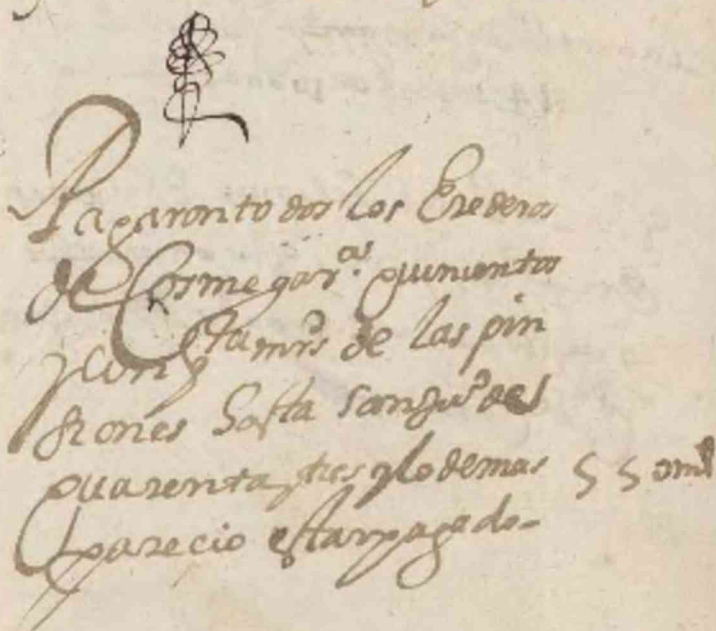 Pagaron todos los Erederos
de Cosme gar.ª quinientos
y cinq.ta mrs de las pin
siones hasta San Ju.º del
quarenta y tres y lo demas 550 mrs
parecio estar pagado-